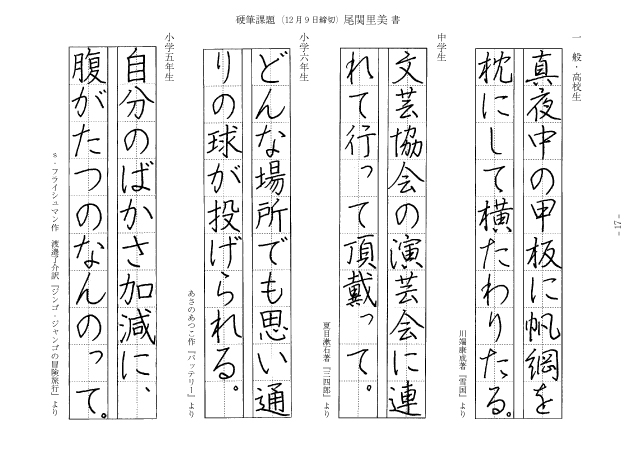 硬筆課題（12月9日締切）尾関里美 書
一般・高校生
真夜中の甲板に帆綱を
枕にして横たわりたる。
川端康成著『雪国』より
中学生
文芸協会の演芸会に連
れて行って頂戴って。
夏目漱石著『三四郎』より
小学六年生
どんな場所でも思い通
りの球が投げられる。
あさのあつこ作『バッテリー』より
小学五年生
自分のばかさ加減に、
腹がたつのなんのって。
s・フライシュマン作　渡邊了介訳『ジンゴ・ジャンゴの冒険旅行』より
- 17 -